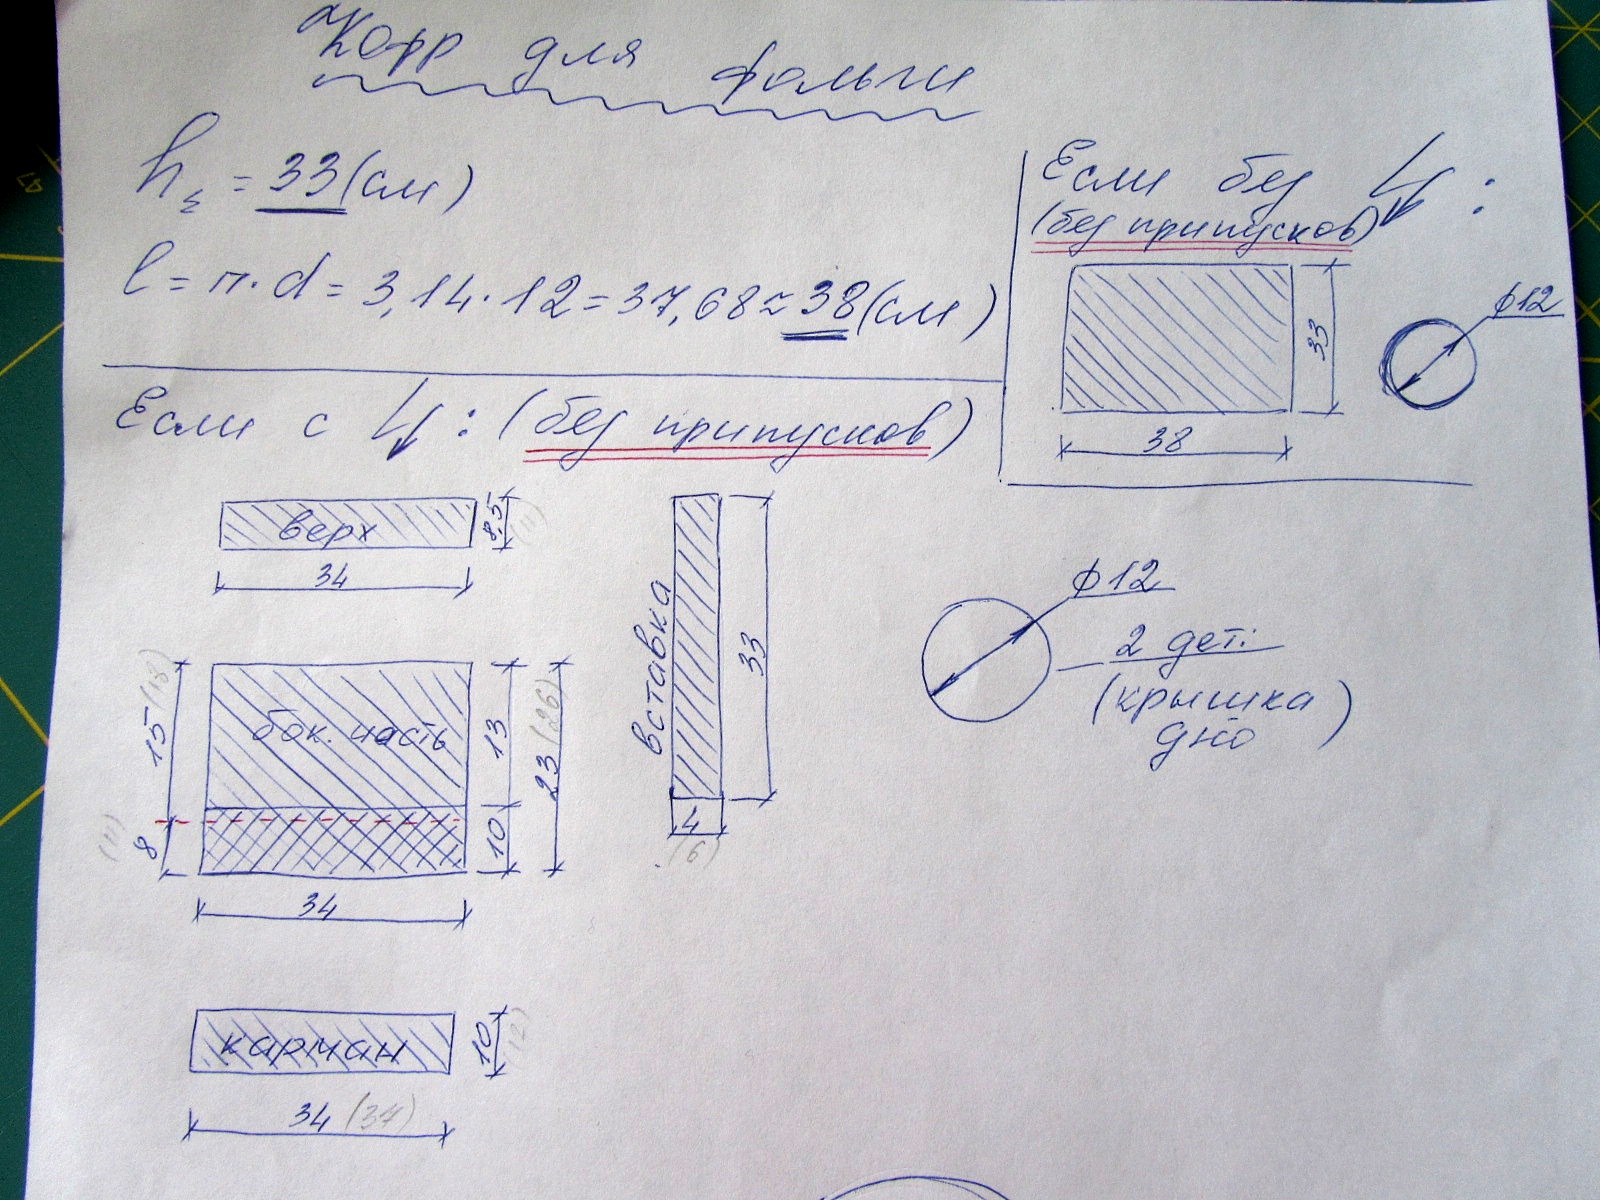 Кофр для фольги
h_Σ = 33 (см)
l = π·d = 3,14·12 = 37,68 ≈ 38 (см)
Если без :
(без припусков)
33
38
ϕ12
Если с : (без припусков)
верх
8,5
(11)
34
вставка
33
4
(6)
ϕ12
2 дет.:
(крышка
дно)
бок. часть
15 (18)
8
(11)
13
10
23 (26)
34
карман
10
(12)
34 (37)